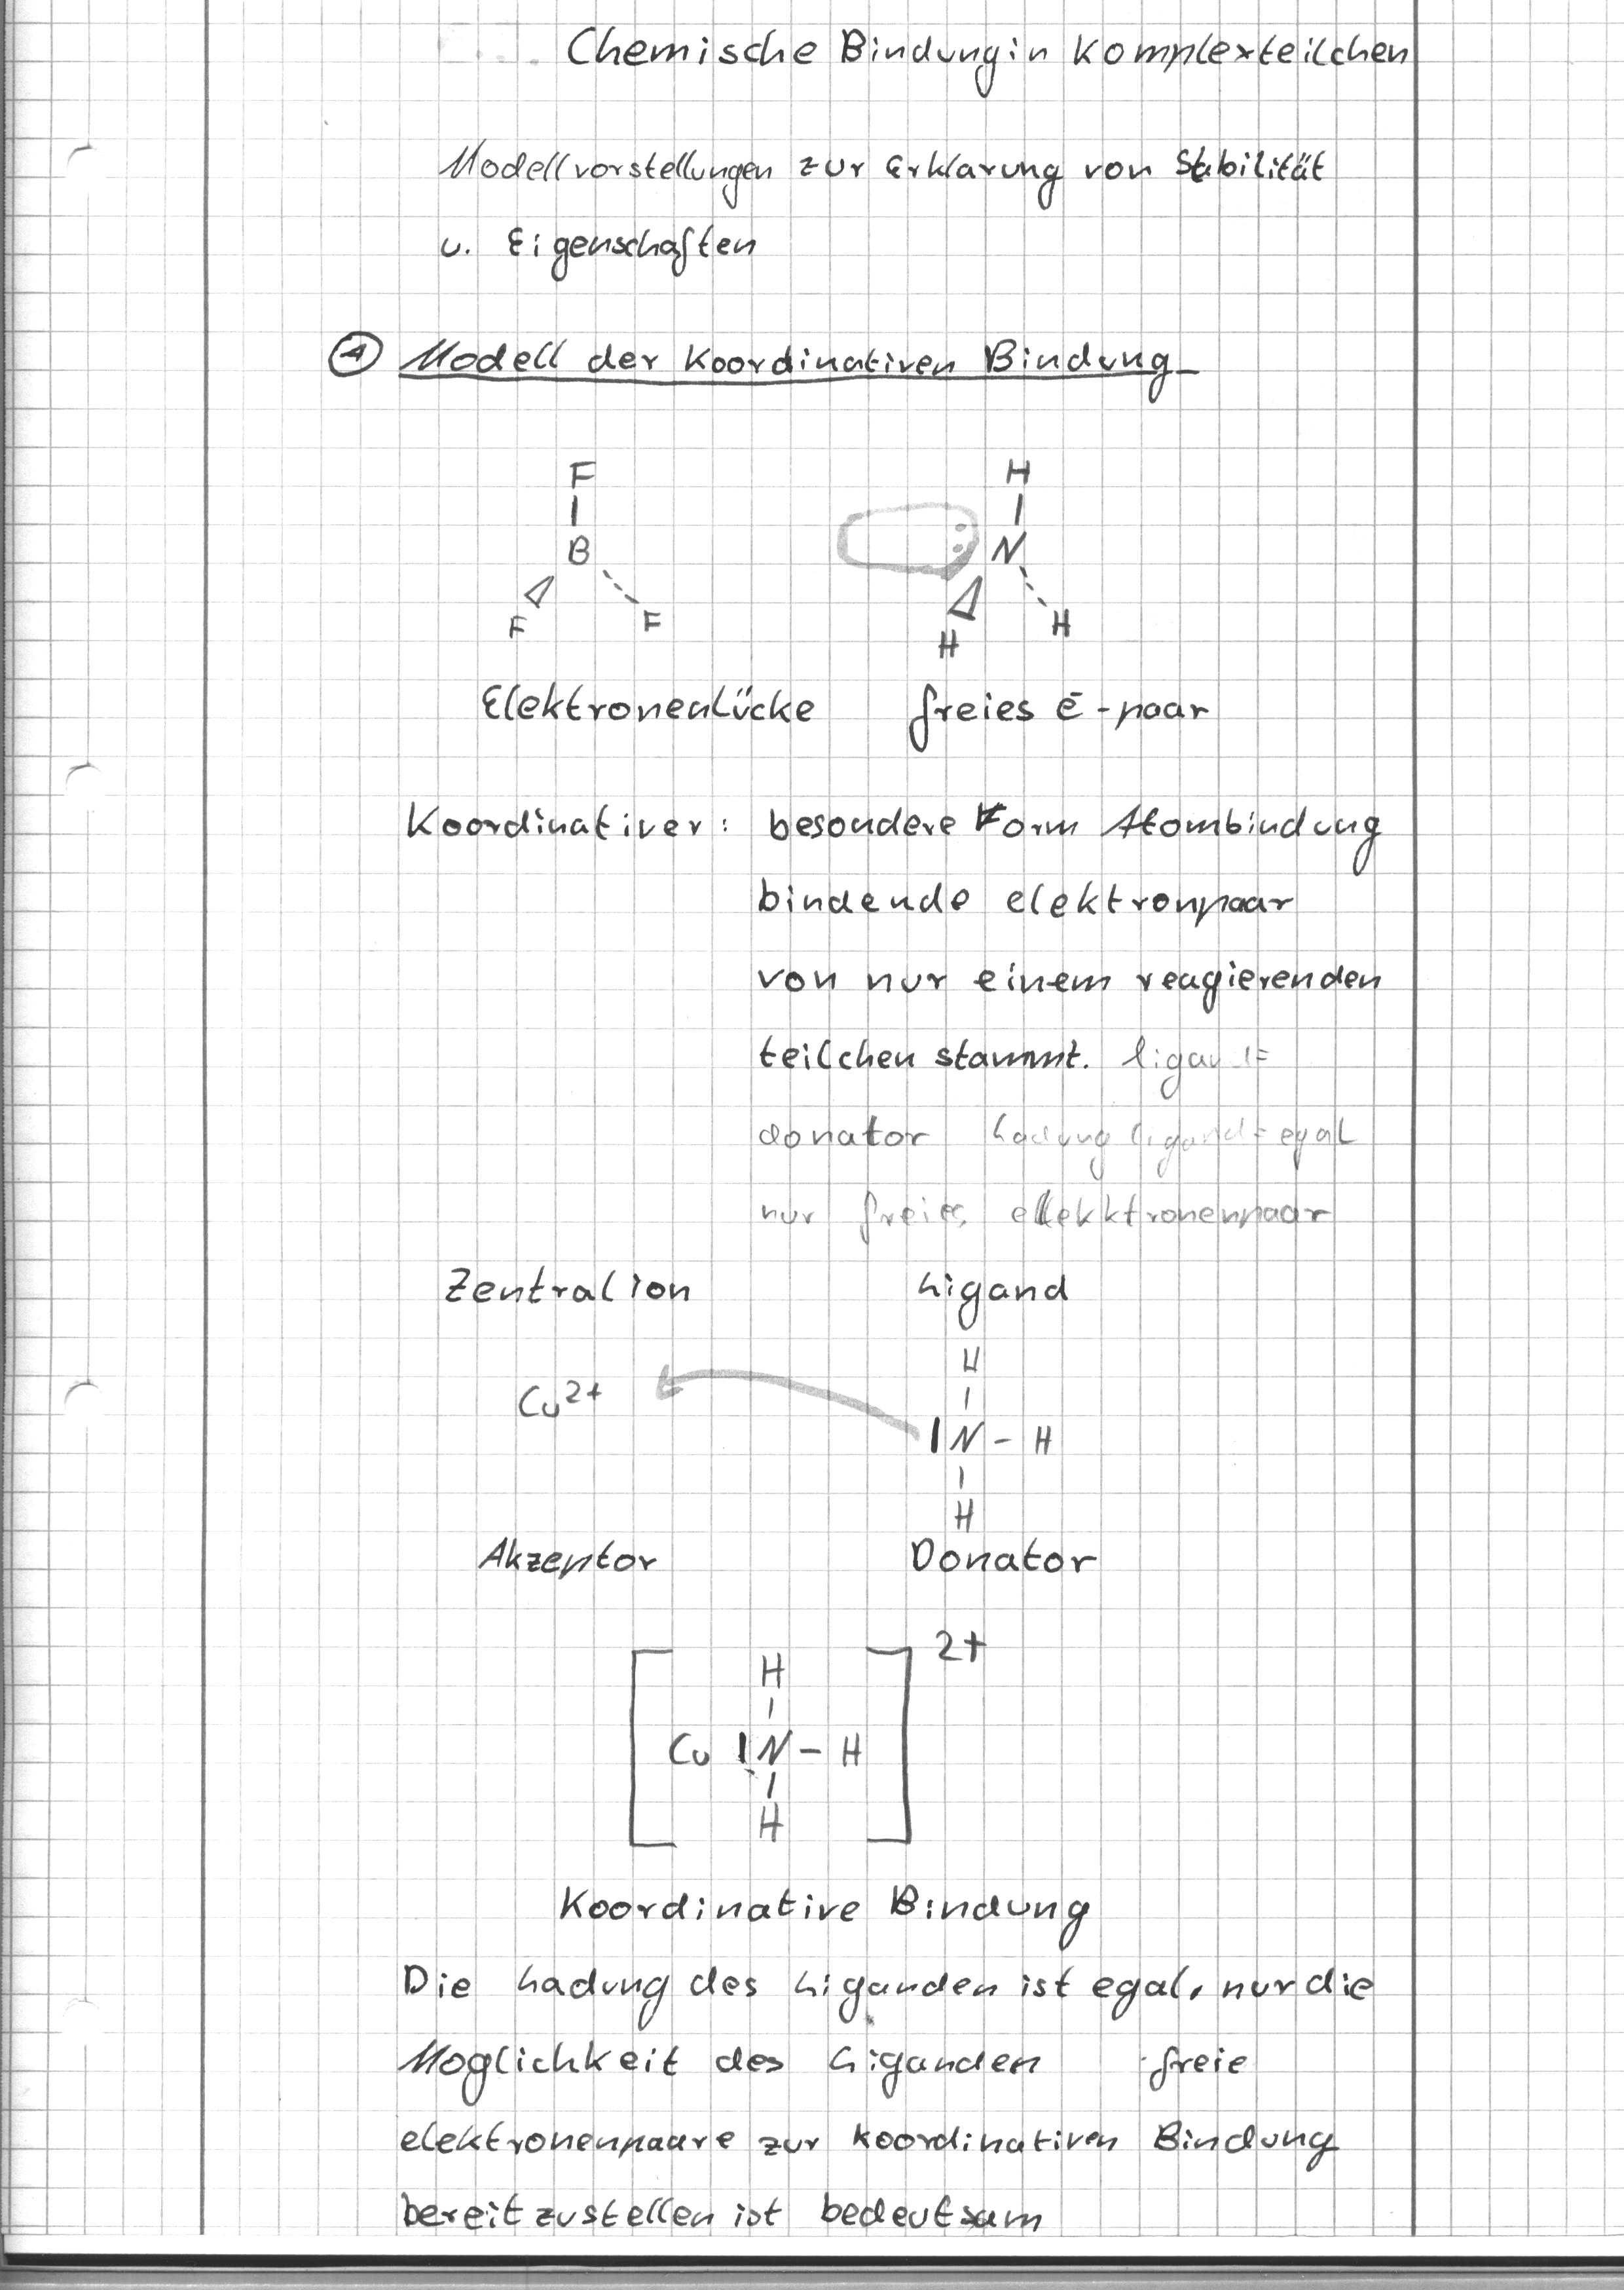 Chemische Bindung in Komplexteilchen
Modellvorstellungen zur Erklarung von Stabilität
u. Eigenschaften
1 Modell der Koordinativen Bindung
F H
B : N
F F H H
Elektronenlücke freies e⁻-paar
Koordinativer: besondere Form Atombindung
bindende elektronpaar
von nur einem reagierenden
teilchen stammt. ligand=
donator Ladung ligand=egal
nur freies ellekktronenpaar
Zentralion Ligand
H
Cu²⁺
|N-H
H
Akzeptor Donator
2+
H
Cu |N-H
H
Koordinative Bindung
Die Ladung des Liganden ist egal, nur die
Moglichkeit des Liganden freie
elektronenpaare zur koordinativen Bindung
bereitzustellen ist bedeutsam